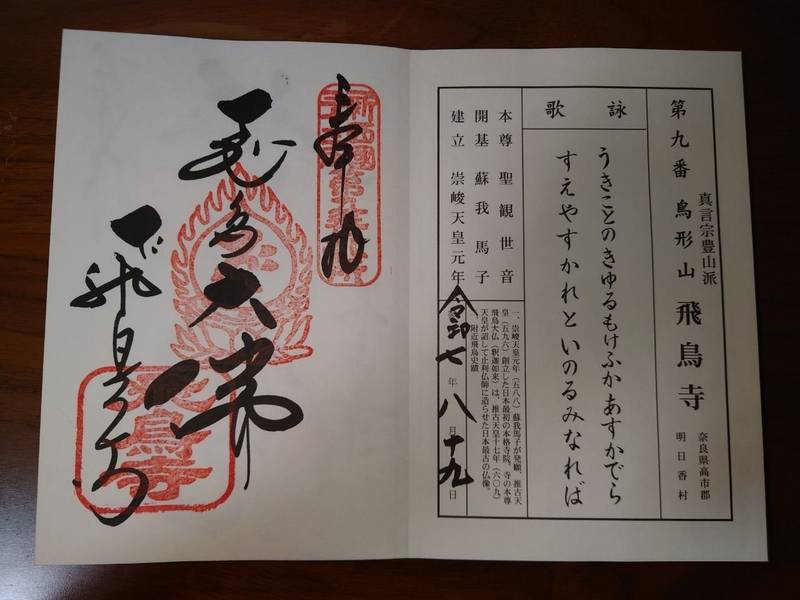 第九番 鳥形山 飛鳥寺
真言宗豊山派
奈良県高市郡
明日香村
詠 歌
うきことのきゆるもけふか あすかでら
すえやすかれと いのるみなれば
本尊 聖観世音
開基 蘇我馬子
建立 崇峻天皇元年
一、崇峻天皇元年(五八八)蘇我馬子が発願、推古天
皇(五九六)創立した日本最初の本格寺院。寺の本尊
飛鳥大仏(釈迦如来)は、推古天皇十七年(六〇九)
天皇が詔して止利仏師に造らせた日本最古の仏像。
附近飛鳥史蹟
令和七年八月十九日
奉拝
飛鳥大佛
飛鳥寺
飛鳥寺